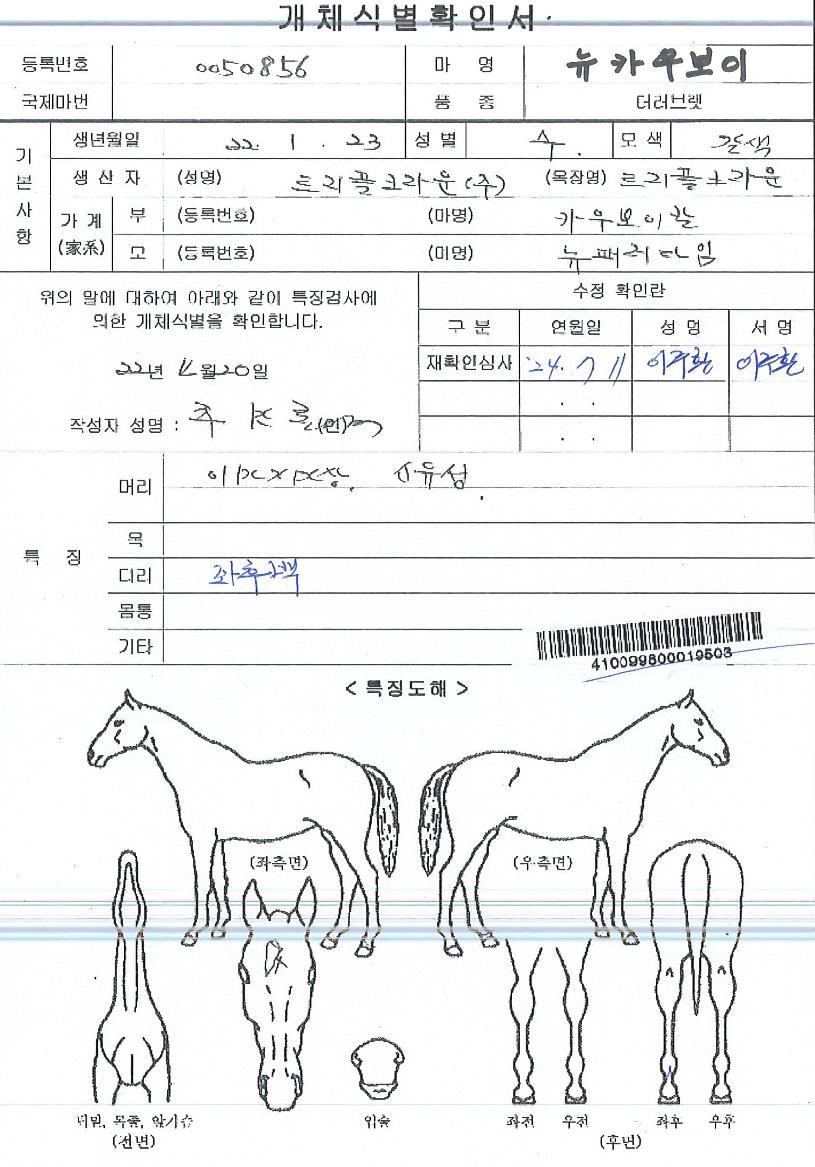 개체식별확인서
등록번호 0050856 마 명 뉴카우보이
국제마번 품 종 더러브렛
기본사항
생년월일 22. 1 . 23 성 별 수 모 색 갈색
생 산 자 (성명) 트리플크라운(주) (목장명) 트리플크라운
가 계 (家系)
부 (등록번호) (마명) 카우보이칼
모 (등록번호) (마명) 뉴패러다임
위의 말에 대하여 아래와 같이 특징검사에
의한 개체식별을 확인합니다.
22년 11월 20일
작성자 성명 : (인)
수정 확인란
구 분 연월일 성 명 서 명
재확인심사 '24. 7 11 이주환 이주환
. .
. .
특 징
머리 유성
목
다리 좌후백
몸통
기타
410099800019503
< 특징도해 >
(좌측면) (우측면)
턱밑, 목줄, 앞가슴 입술 좌전 우전 좌후 우후
(전면) (후면)